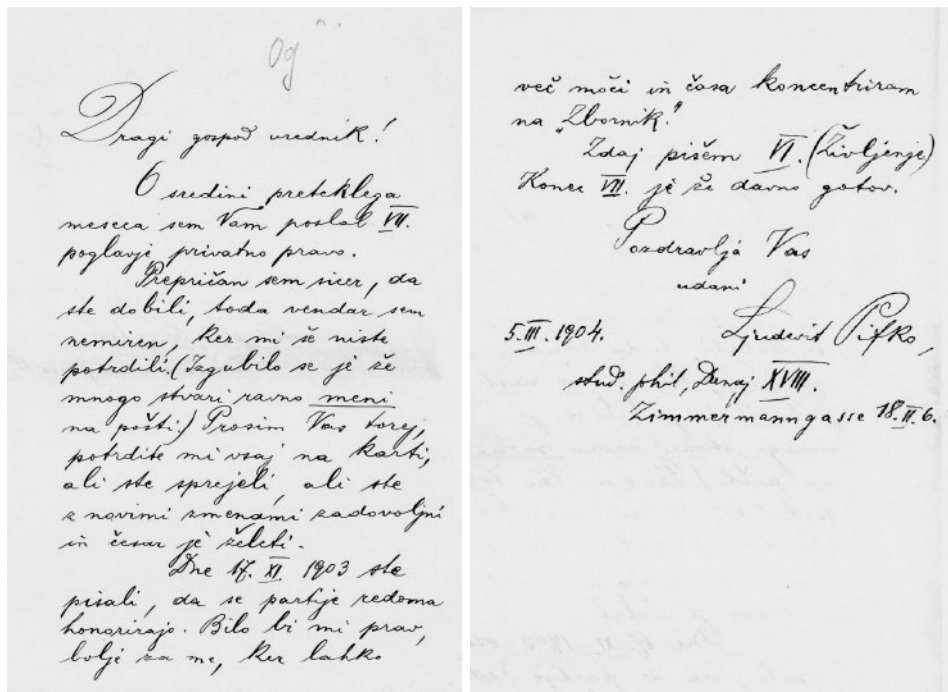 Og
Dragi gospod urednik!
O sredini preteklega
meseca sem Vam poslal VII.
poglavje privatno pravo.
Prepričan sem sicer, da
ste dobili, toda vendar sem
nemiren, ker mi še niste
potrdili. (Izgubilo se je že
mnogo stvari ravno meni
na pošti.) Prosim Vas torej,
potrdite mi vsaj na karti,
ali ste sprejeli, ali ste
z novimi zmenami zadovoljni
in česar je želeti.
Dne 17. XI. 1903 ste
pisali, da se partije redoma
honorirajo. Bilo bi mi prav,
bolje za me, ker lahko
več moči in časa koncentriram
na „Zbornik."
Zdaj pišem VI. (Življenje)
Konec VII. je že davno gotov.
Pozdravlja Vas
udani
Ljudevit Pifko,
5. III. 1904.
stud. phil, Dunaj XVIII.
Zimmermanngasse 18. II. 6.